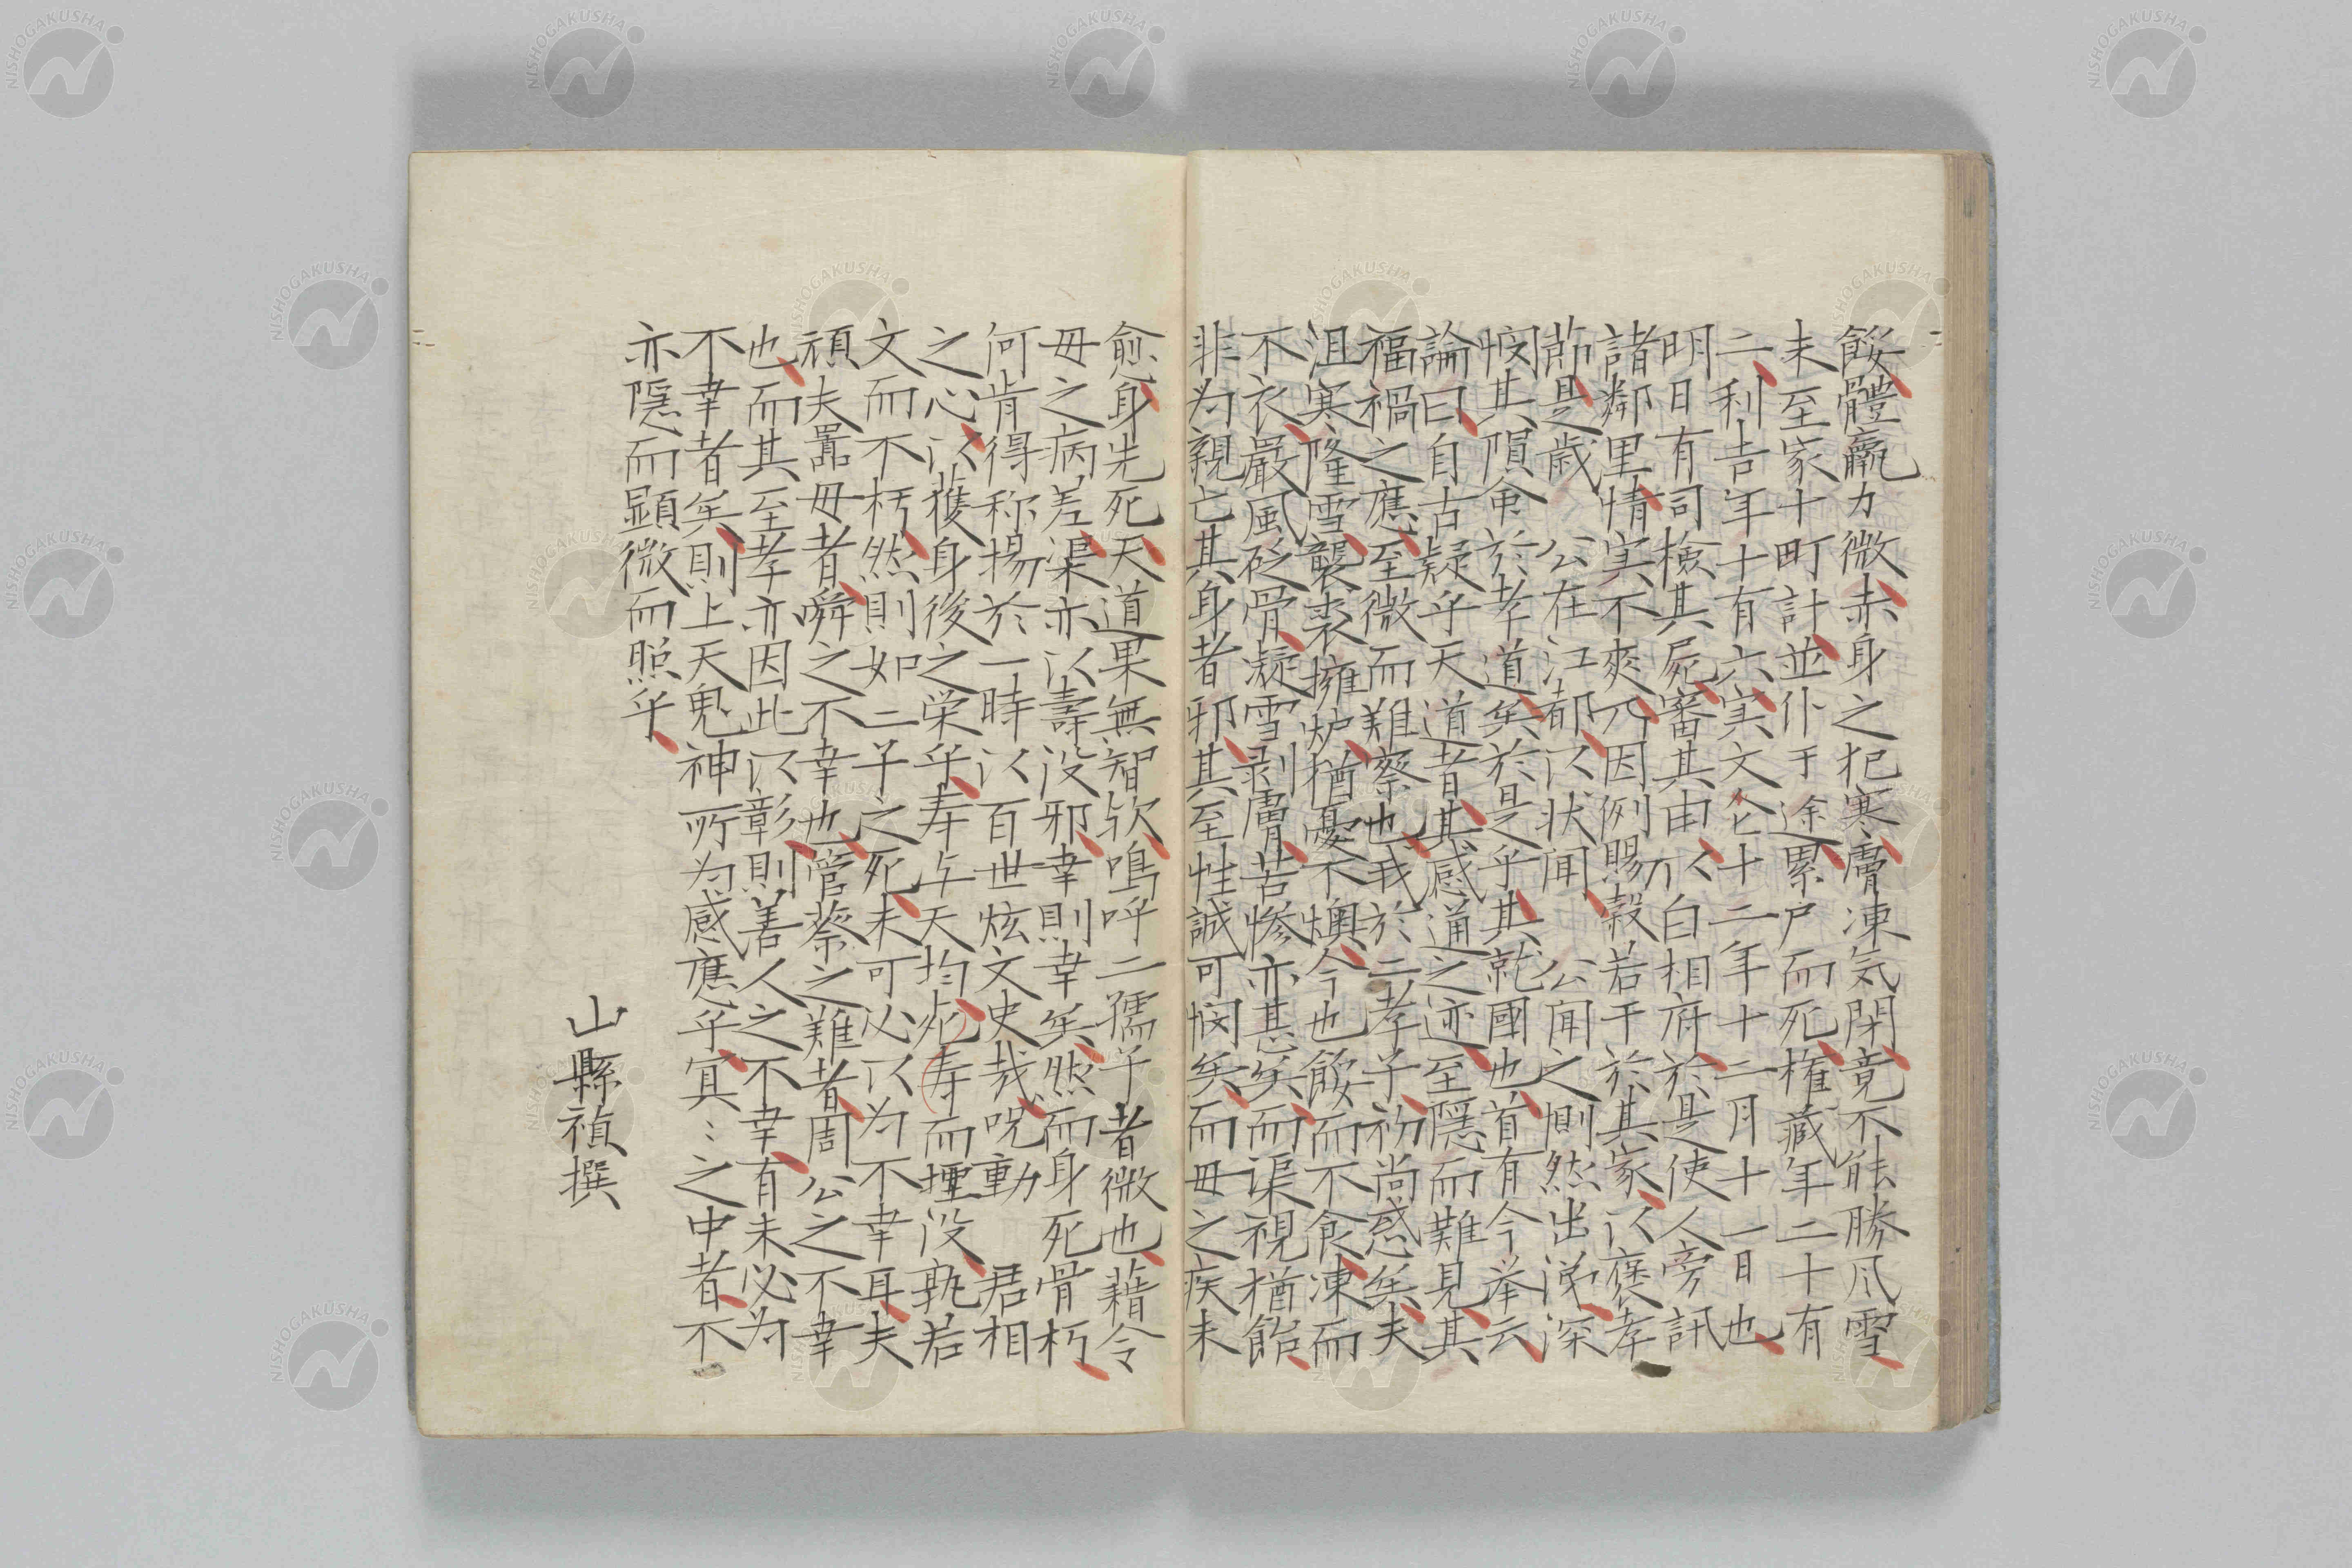 餒體羸力微赤身之犯寒膚凍気閉竟不能勝风雪
未至家十町計並仆于途累尸而死権藏年二十有
二利吉年十有六実文化十二年十二月十一日也
明日有司檢其屍審其由以白相府於是使人旁訊
諸鄰里情実不爽乃因例賜穀若干於其家以褒孝
莭是歳 公在江都以状聞 公聞之惻然出涕深
悯其隕命於孝道矣於是乎其就國也首有今举云
論曰自古疑乎天道者其感通之迹至隱而難見其
福禍之應至微而難察也我於二孝子祢尚惑矣夫
沮寒隆雪襲裘擁炉猶憂不燠今也餒而不食凍而
不衣嚴風砭骨凝雪剥膚苦惨亦甚矣而渠視猶飴
非为親亡其身者邪其至性誠可悯矣而毋之疾未
愈身先死天道果無智欤鳴呼二孺子者微也藉令
毋之病差渠亦以壽没邪幸則幸矣然而身死骨朽
何肯得称揚於一時以百世炫文史哉况動 君相
之心以獲身後之栄乎寿与天均死寿而堙没孰若
文而不朽然則如二子之死未可必以为不幸耳夫
頑夫嚚毋者舜之不幸也管蔡之難者周公之不幸
也而其至孝亦因此以彰則善人之不幸有未必为
不幸者矣則上天鬼神所为感應乎冥〻之中者不
亦隱而顕微而照乎
山縣禎撰
NISHOGAKUSHA